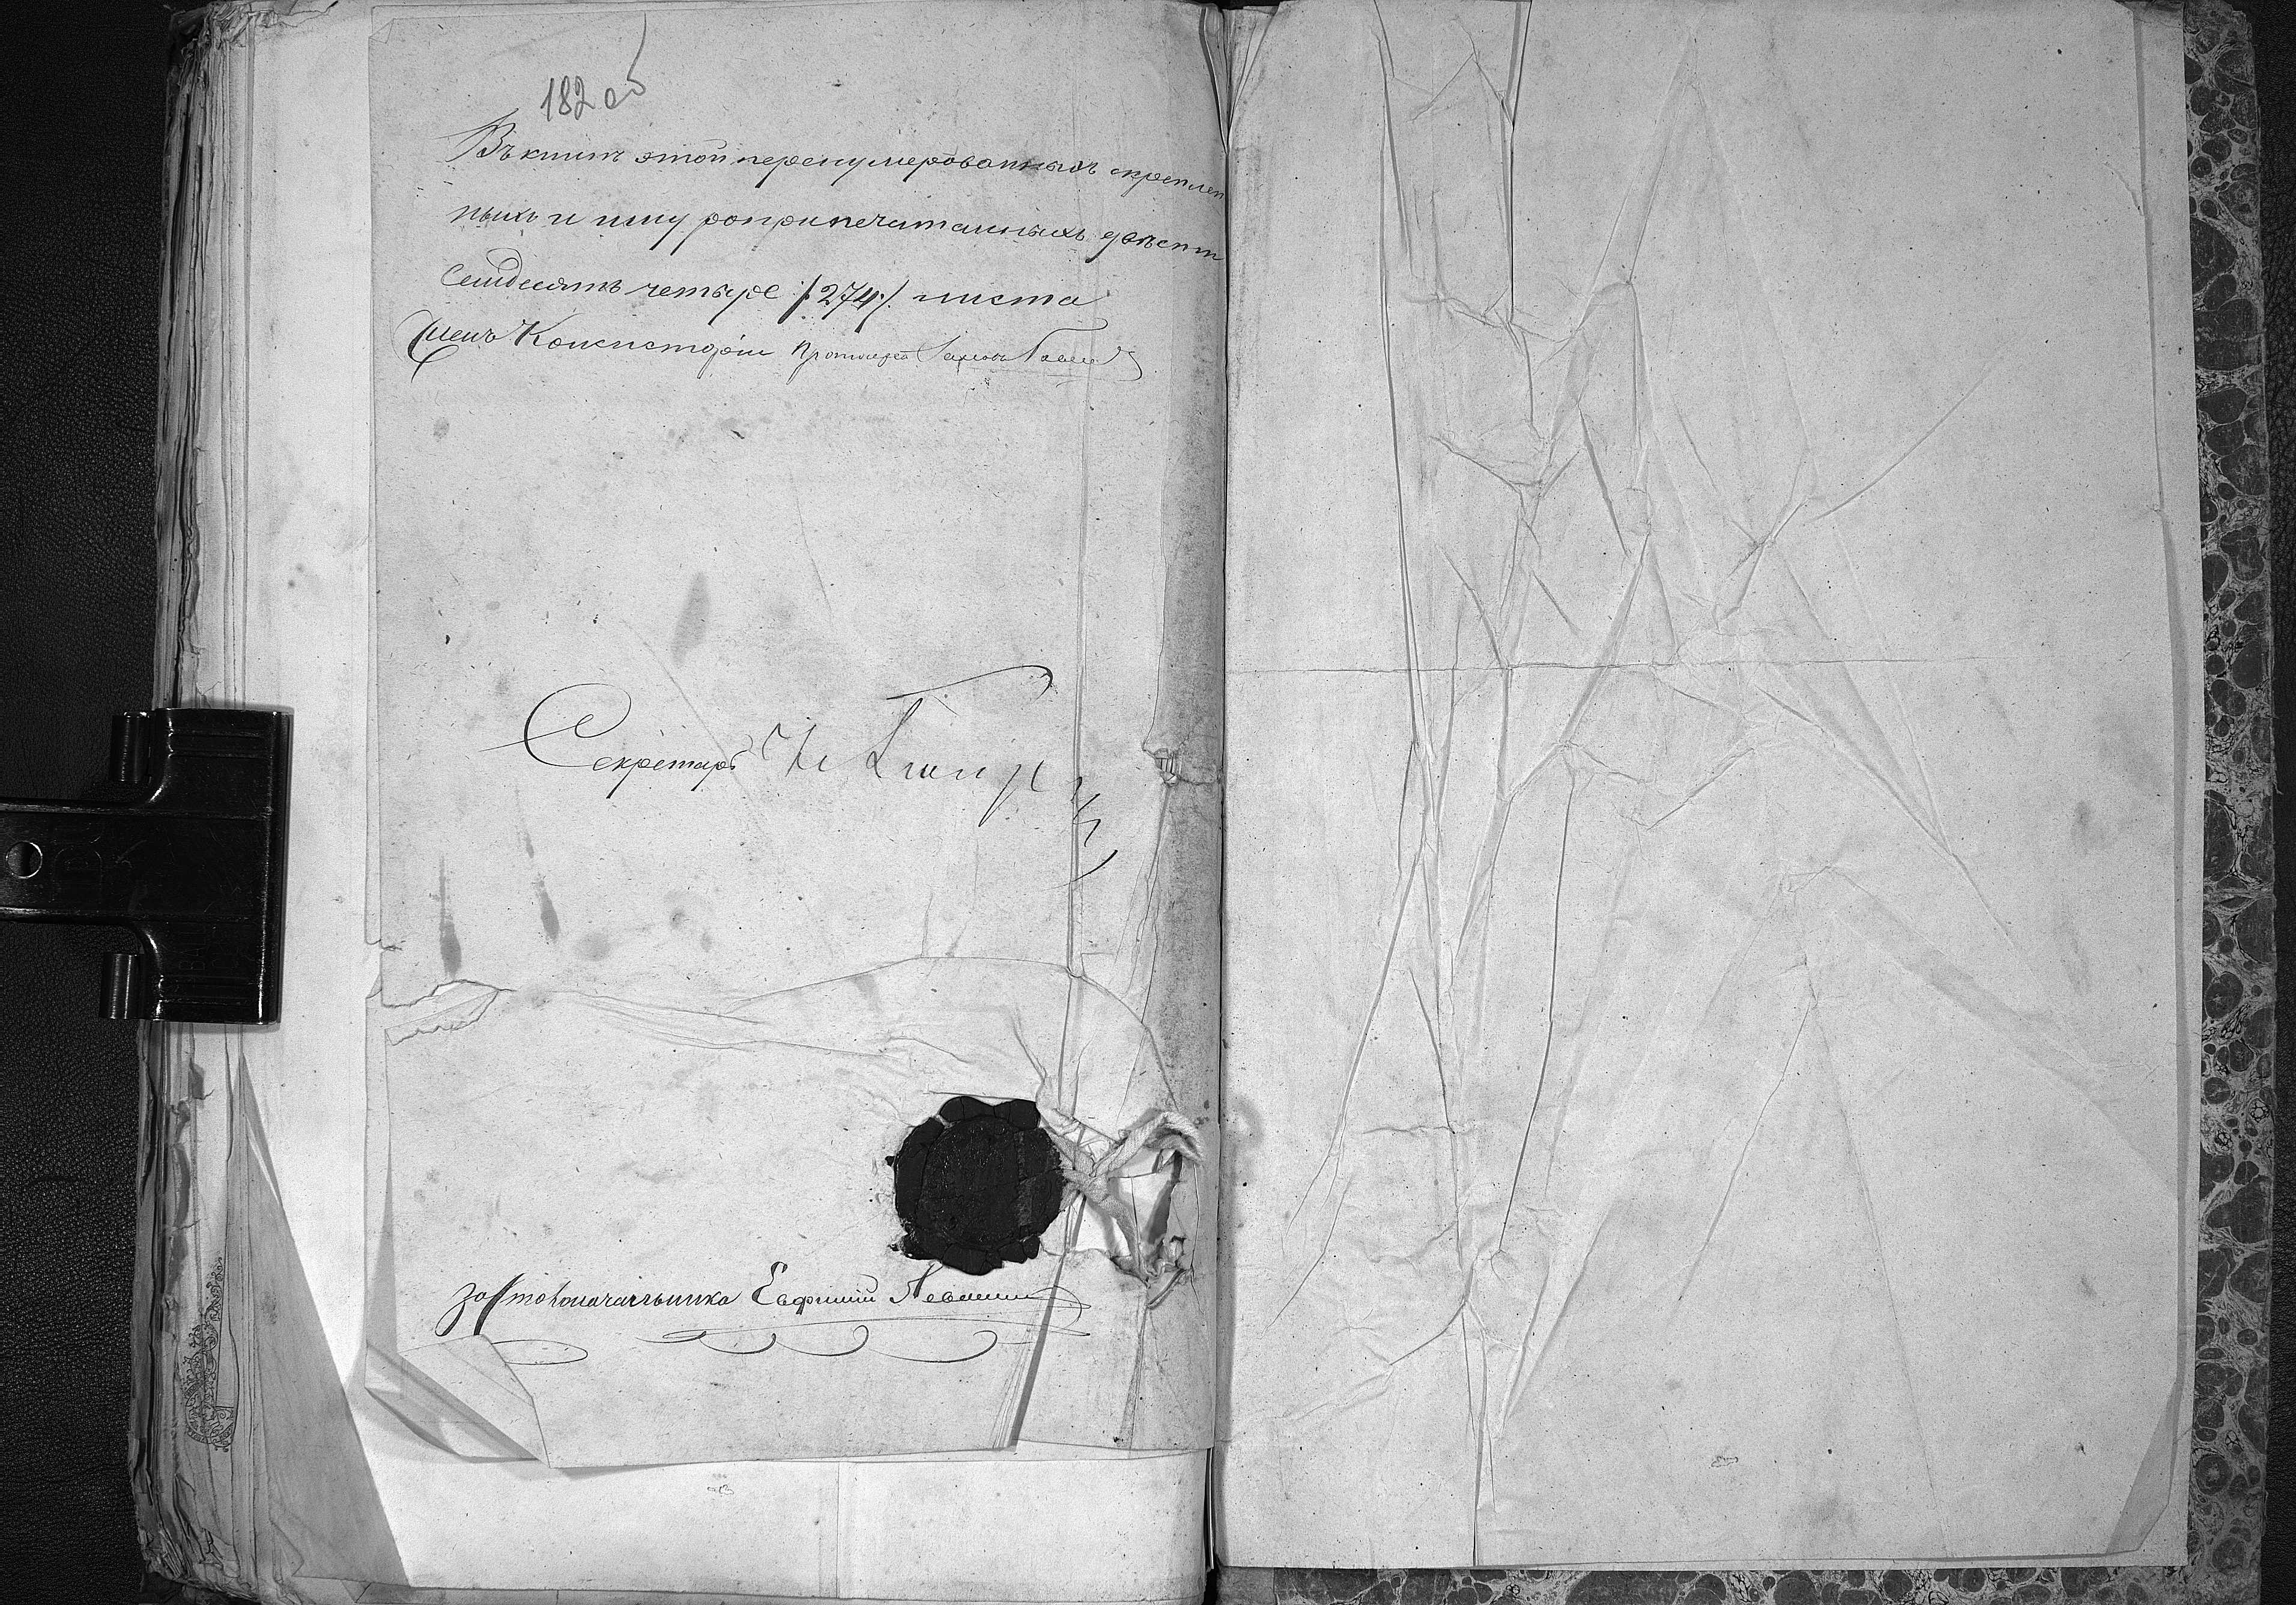 182 об
Въ книгѣ этой перенумерованныхъ скрѣплен
ныхъ и шнуроприпечатанныхъ двѣсти
Семдесятъ четыре /.274./ листа
Членъ Консисторіи Протоіерей
Секретарь
За Столоначальника Евфимій